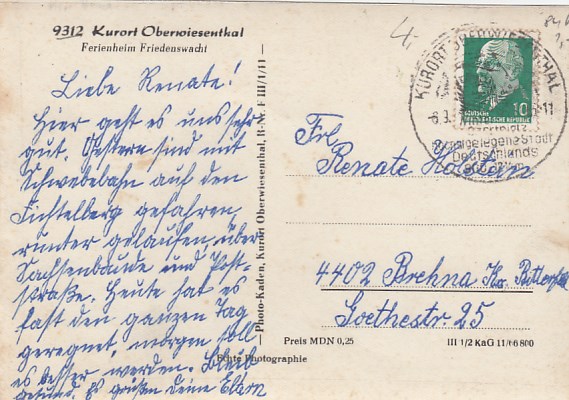 9312 Kurort Oberwiesenthal
Ferienheim Friedenswacht
Liebe Renate!
Hier geht es uns sehr
gut. Gestern sind mit
Schwebebahn auf den
Fichtelberg gefahren,
runter gelaufen, über
Sachsenbaude und Post-
straße. Heute hat es
fast den ganzen Tag
geregnet, morgen soll
es besser werden. Bleib
gesund. Es grüßen Deine Eltern
Photo-Kaden, Kurort Oberwiesenthal, R-Nr. F III/1/11
4,
KURORT OBERWIESENTHAL
10
DEUTSCHE
DEMOKRATISCHE REPUBLIK
Höchstgelegene Stadt
Deutschlands
Frl.
Renate
4402 Brehna Kr. Bitterfeld
Goethestr. 25
Preis MDN 0,25
III 1/2 KaG 11/66 800
Echte Photographie